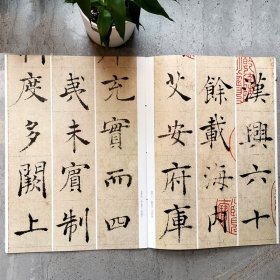 漢興六十
餘載海內
艾安府庫
充實而四
夷未賓制
度多闕上